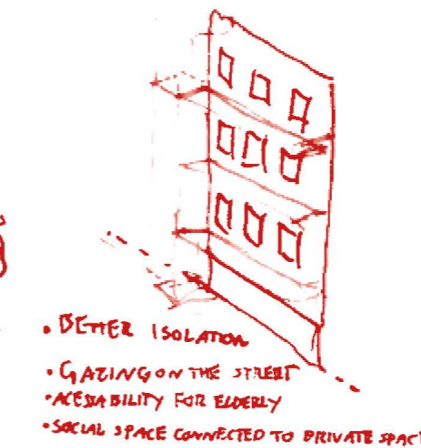 • BETTER ISOLATION
• GAZING ON THE STREET
• ACESSABILITY FOR ELDERLY
• SOCIAL SPACE CONNECTED TO PRIVATE SPACE